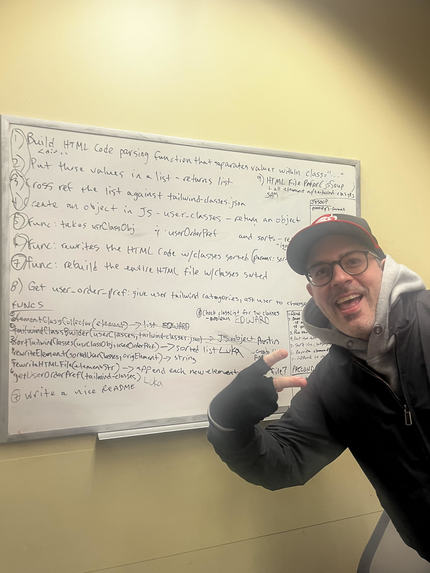 1) Build HTML Code parsing function that separates values within class="..."
<div..
2) Put those values in a list - returns list
3) Cross ref the list against tailwind-classes.json
4) Create an object in JS - user_classes - return an object
5) Func: takes usrClassObj
& userOrderPref
and sorts
6) Func: rewrites the HTML Code w/classes sorted (params:
7) func: rebuild the entire HTML file w/classes sorted
8) Get user_order_pref: give user tailwind categories, ask user to
9) HTML File Parser
FUNCS
elementClassCollector(element) -> list EDWARD
tailwindClassBuilder(userClasses, tailwind-classes.json) -> JS object Austin
sortTailwindClasses(usrClassObj, userOrderPref) -> sorted list Luka
rewriteElement(sortedUserClasses, origElement) -> string
rewriteHTMLFile(elementStr) -> append each new element
getUserOrderPref(tailwind-classes) Luka
Check classlist for tw classes
- boolean EDWARD
Write a nice README